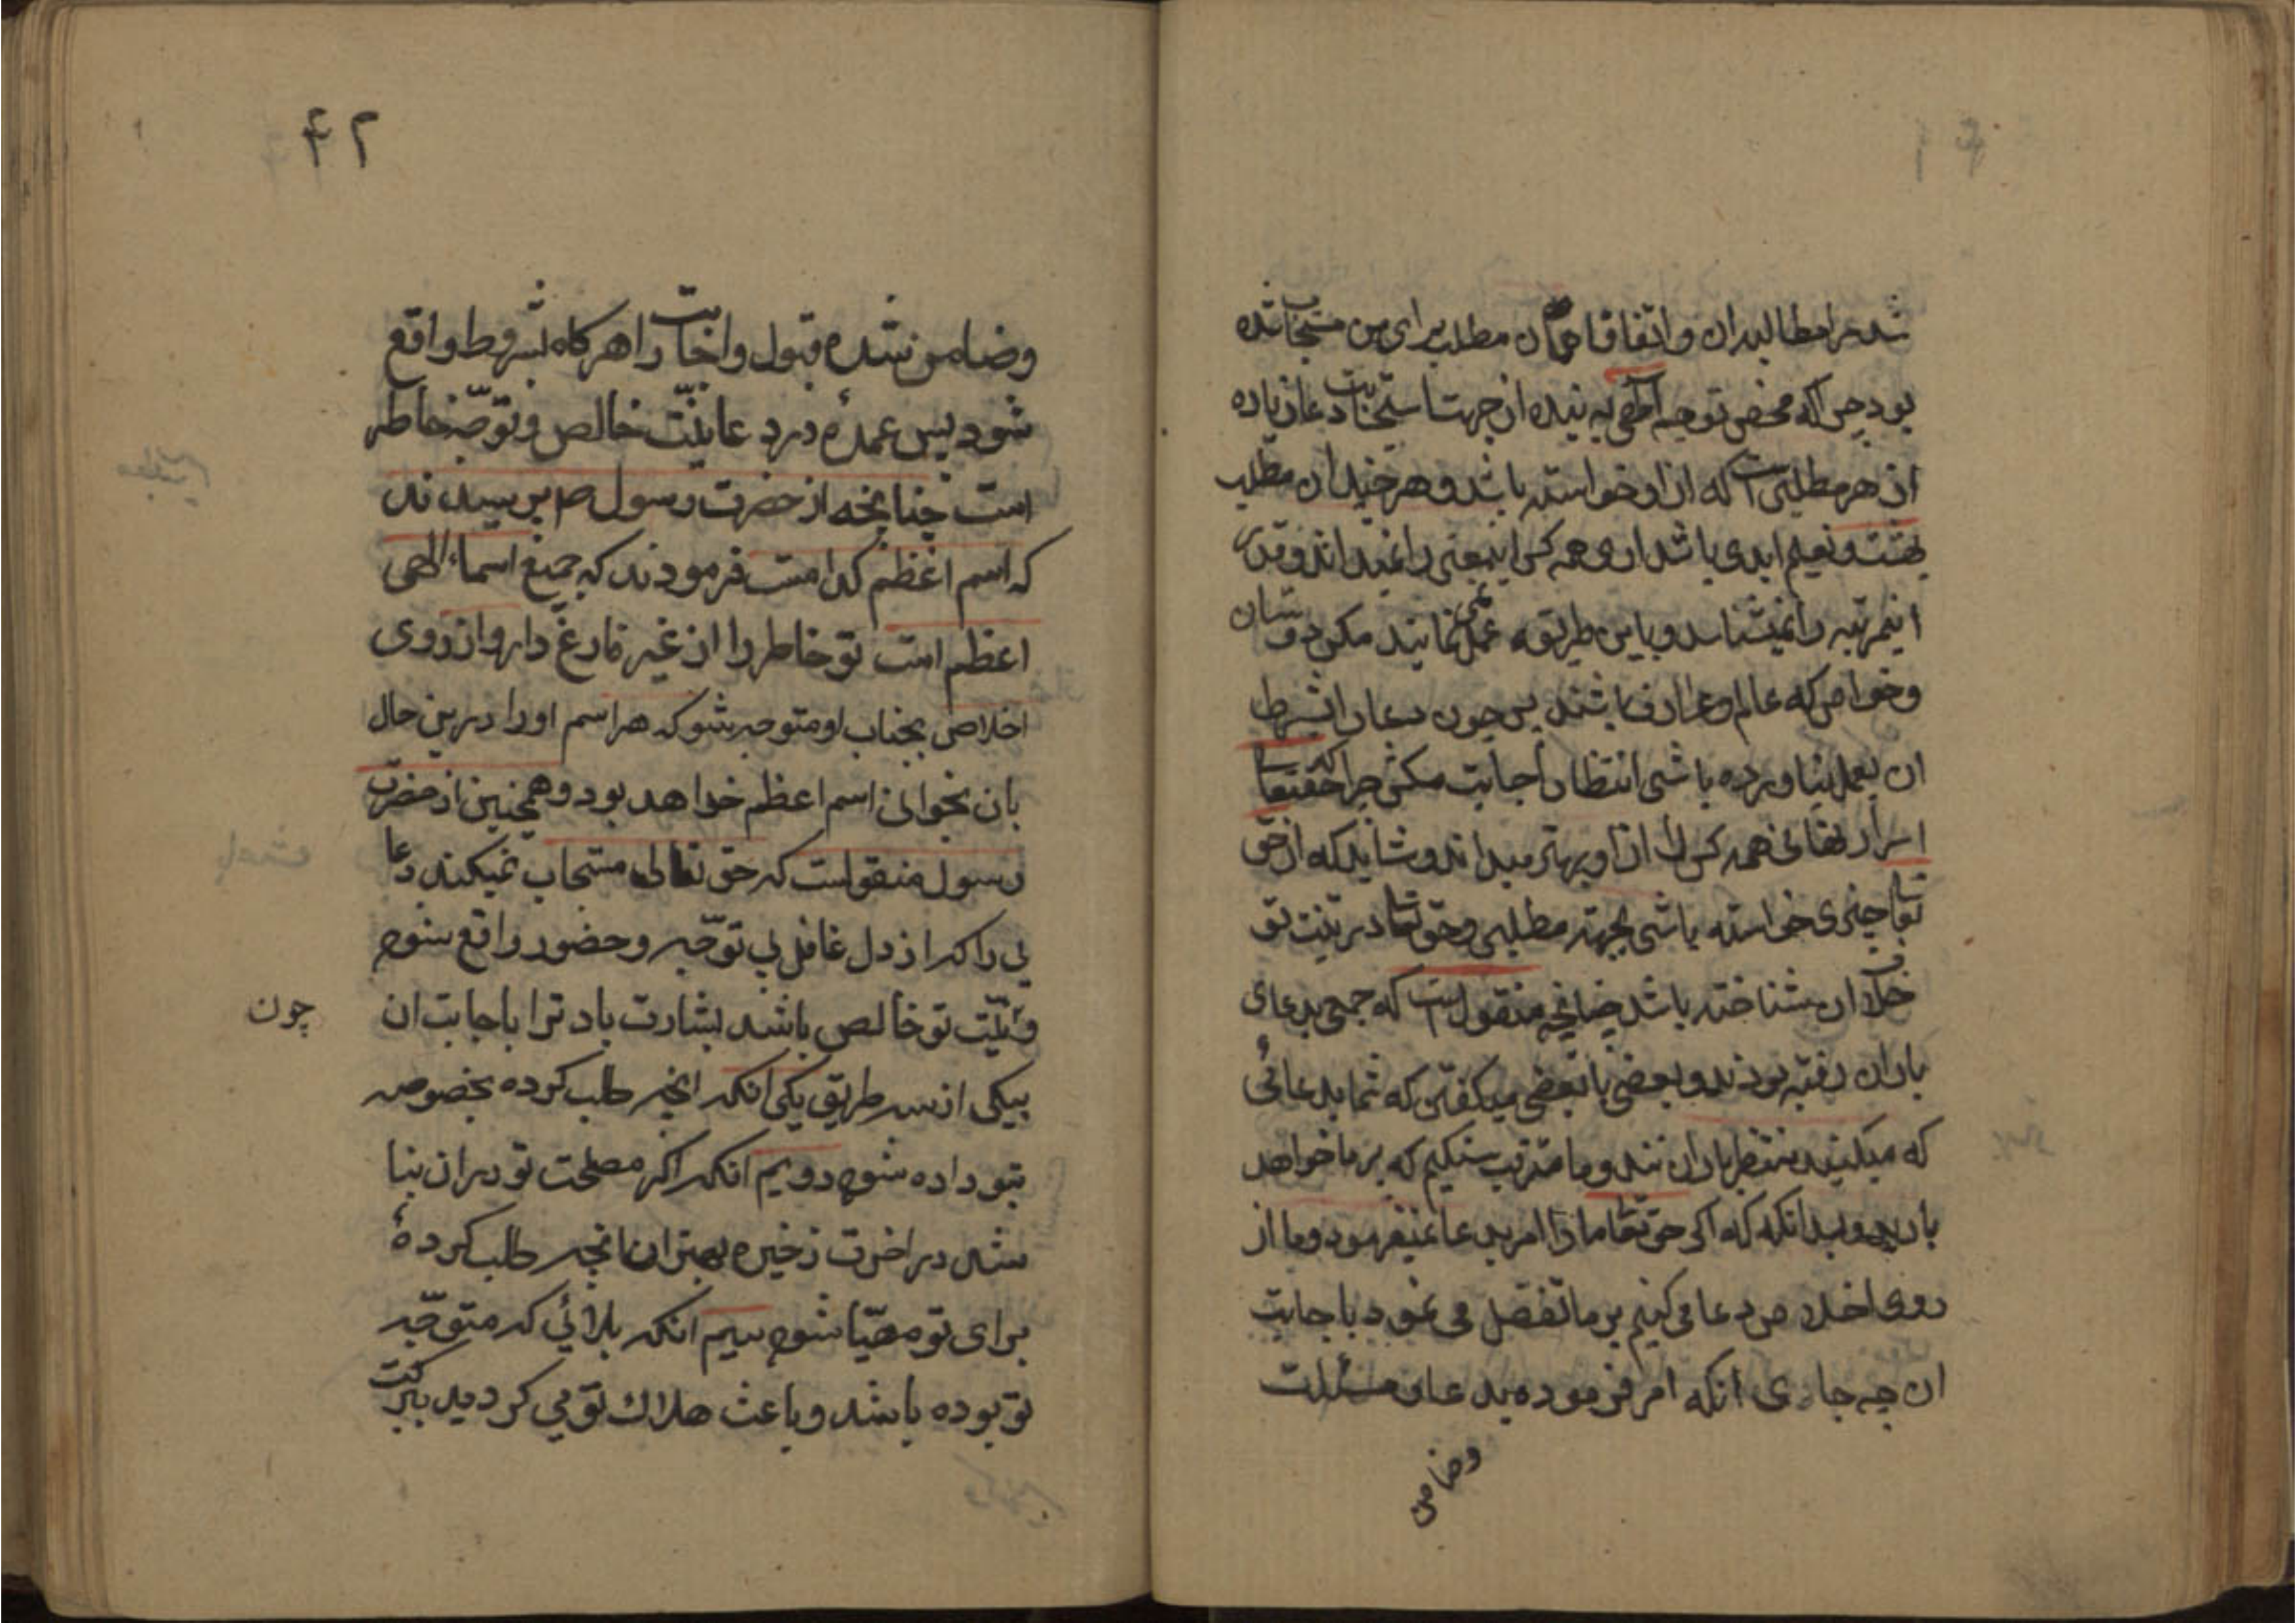 شد مرا مطالبدان و اتفاقا همان مطلب برای من مستجاب شده
بود چراکه محض توجه الهی به بنده از جهت استجابت دعا زیاده
از هر مطلبی است که از او خواسته باشد و هر چند آن مطلب
بهشت و نعیم ابدی باشد اری همه کس اینمعنی را نمیداند و قدر
اینمرتبه را نمیشناسد و باین طریقه عمل نمی نمایند مکر دوستان
و خواص که عالم و عارف باشند پس چون دعا را بشرط
ان بعمل نیاورده باشی انتظار اجابت مکش چرا که حقتعا
اسرار نهانی همه کس را از او بهتر میداند و شاید که از حق
تعا چیزی خواسته باشی بجهته مطلبی و حق تعا در نیت تو
خلاف ان شناخته باشد چنانچه منقول است که جمعی بدعای
باران رفته بودند و بعضی با بعضی میکفتند که شما بدعائی
که میکنید منتظر باران اند و ما مترقب سنکیم که بر ما خواهد
بارید و بدانکه که اکر حق تعا ما را امر بدعا نمیفرمود و ما از
روی اخلاص دعا می کنیم بر ما تفضل می نمود با جابت
ان چه جای انکه امر فرموده بدعا و مسئلت
وضامن
۴۲
وضامن شده قبول و اجابت را هر کاه شروط واقع
شود پس عمده در دعا نیّت خالص و توجّه خاطر
است چنانچه از حضرت رسول ص پرسیدند
که اسم اعظم کدامست فرمودند که جمیع اسماء الهی
اعظم است تو خاطر را از غیر فارغ دار و از روی
اخلاص بجناب او متوجه شو که هر اسم او را درین حال
بان بخوانی اسم اعظم خواهد بود و همچنین از حضرت
رسول منقولست که حق تعالی مستجاب نمیکند دعا
یی را که از دل غافل بی توجّه و حضور واقع شود
و نیّت تو خالص باشد بشارت باد ترا باجابت ان
چون
بیکی از سه طریق یکی انکه انچه طلب کرده بخصوصه
بتو داده شود دویم انکه اکر مصلحت تو دران نبا
شد در اخرت ذخیره بهتر ان انچه طلب کردهٔ
برای تو مهیّا شود سیم انکه بلائی که متوجّه
تو بوده باشد و باعث هلاک تو می کردید ببرکت